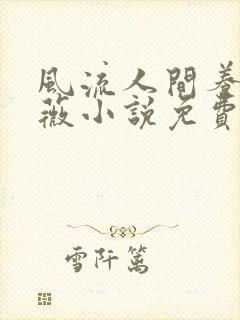 風流人間養
薇小說免費
雪阡篱